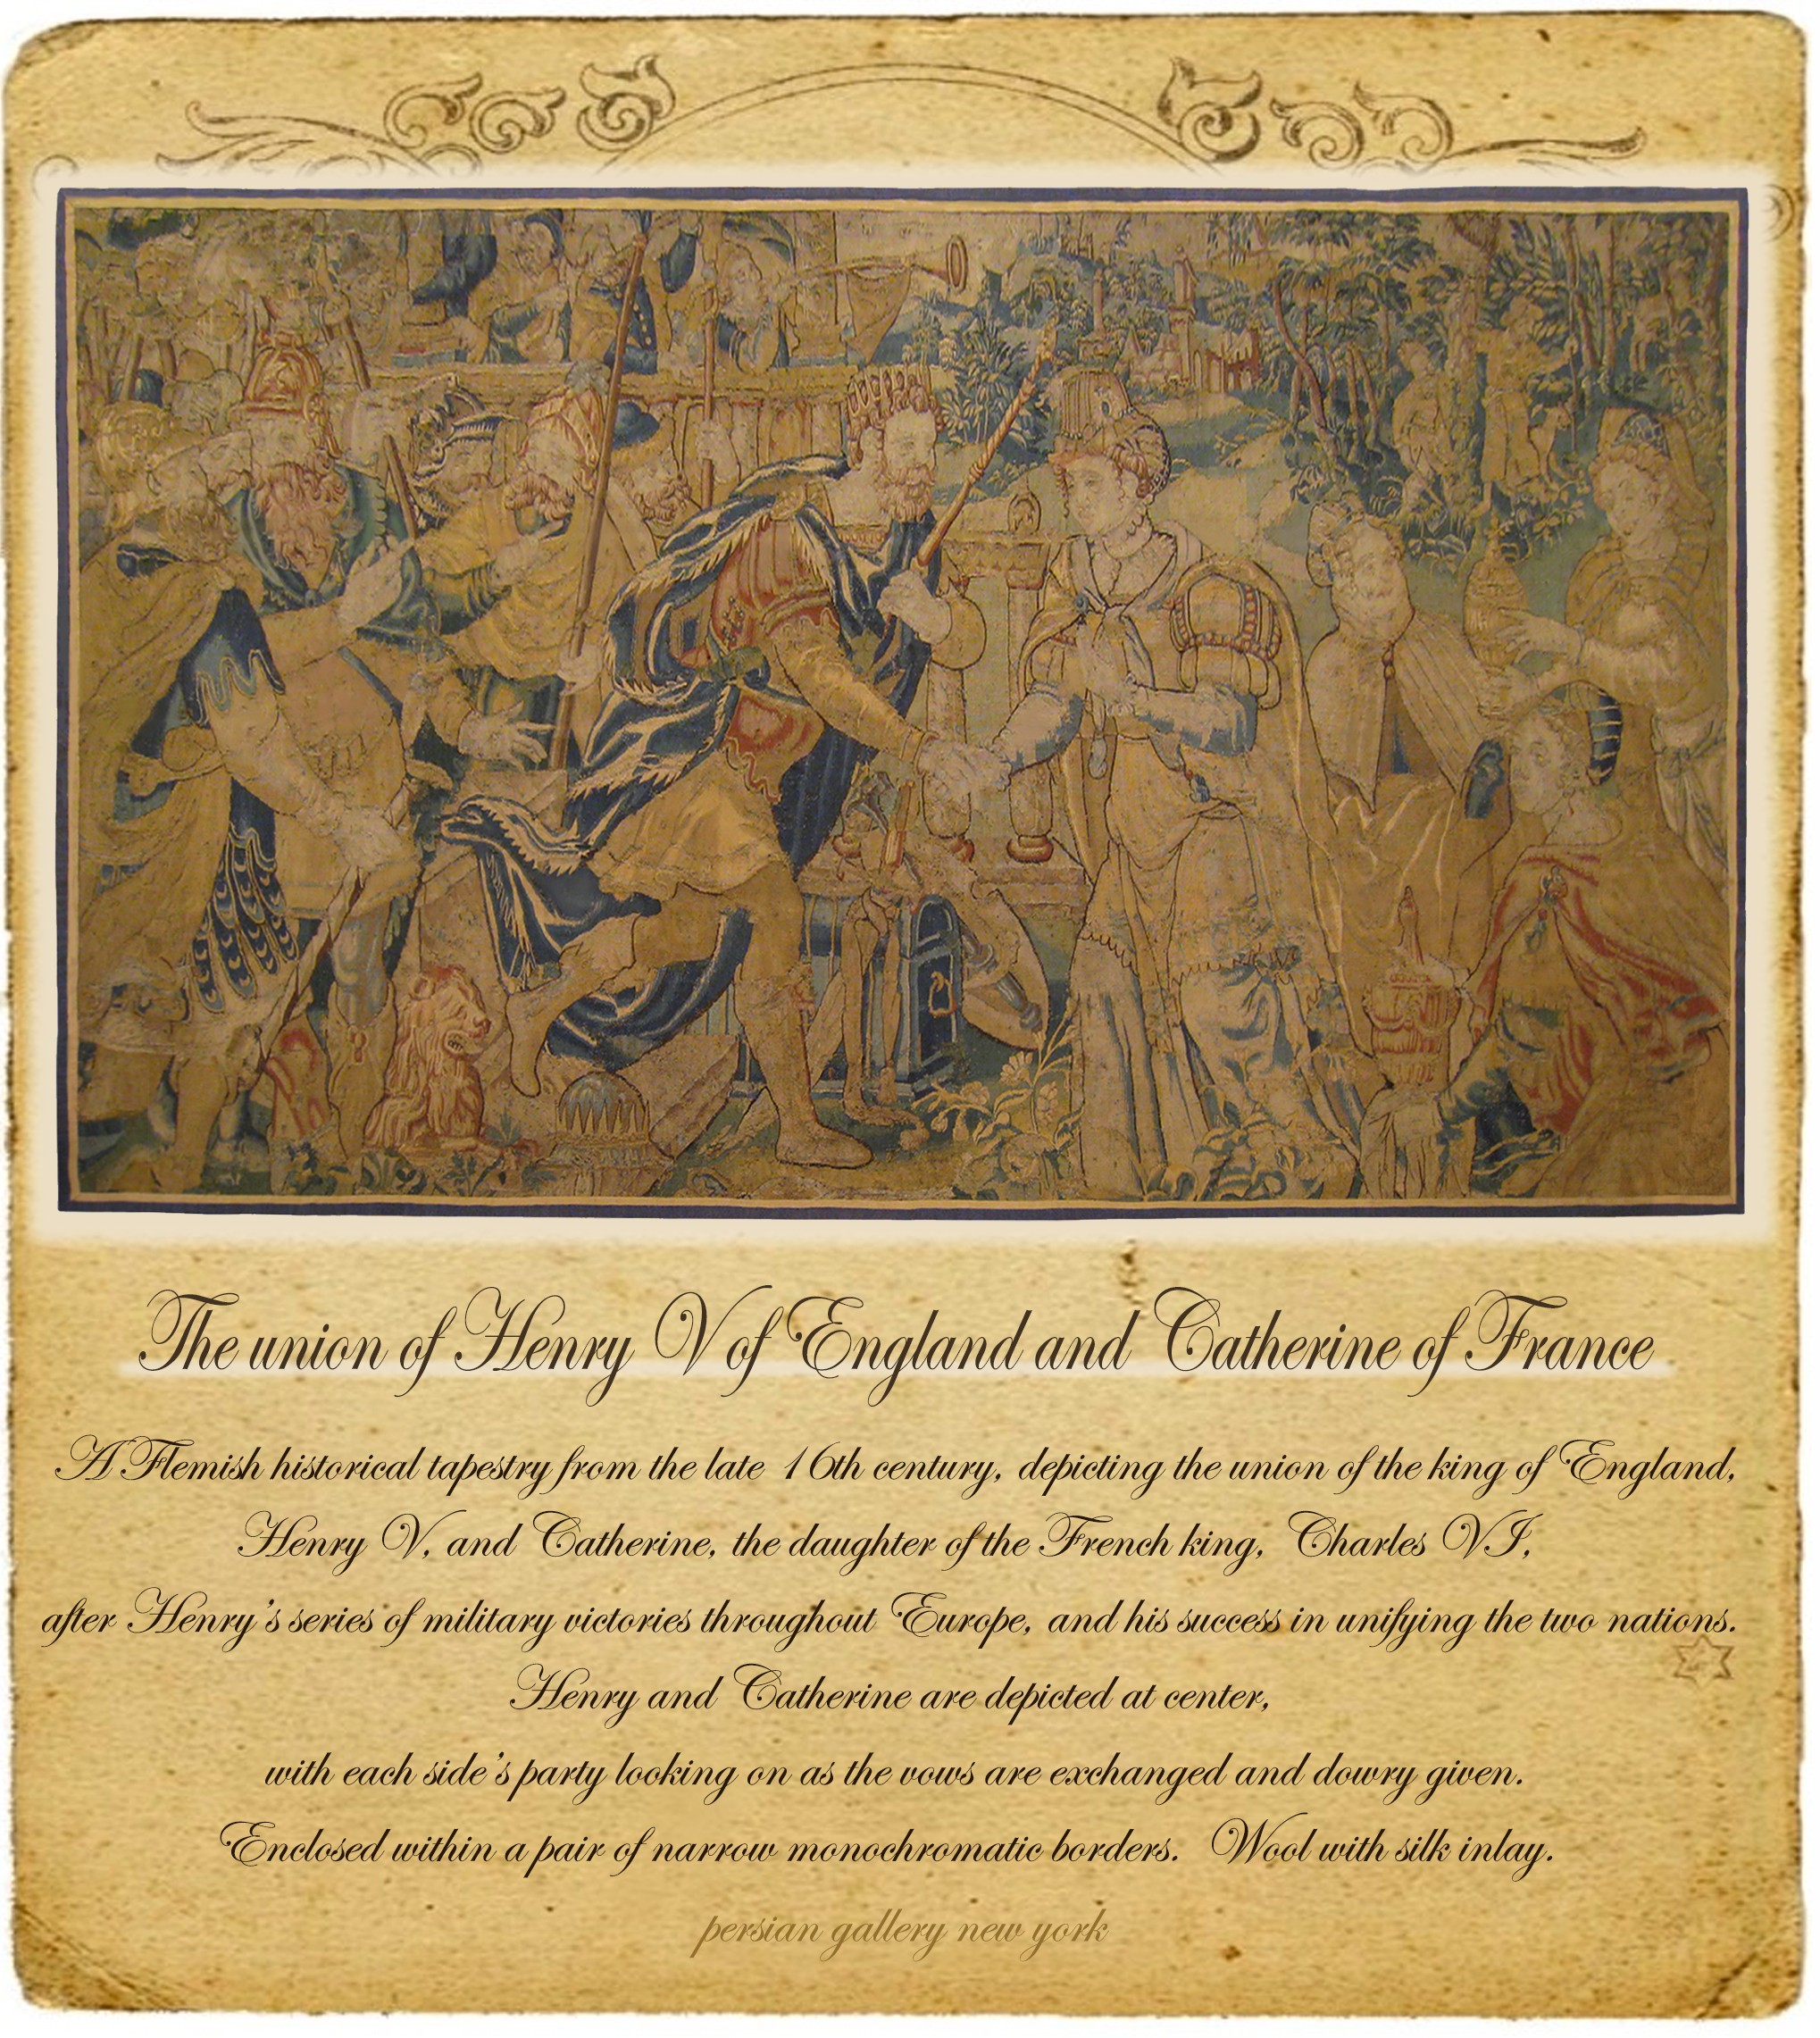 The union of Henry V of England and Catherine of France
A Flemish historical tapestry from the late 16th century, depicting the union of the king of England,
Henry V, and Catherine, the daughter of the French king, Charles VI,
after Henry's series of military victories throughout Europe, and his success in unifying the two nations.
Henry and Catherine are depicted at center,
with each side's party looking on as the vows are exchanged and dowry given.
Enclosed within a pair of narrow monochromatic borders. Wool with silk inlay.
persian gallery new york